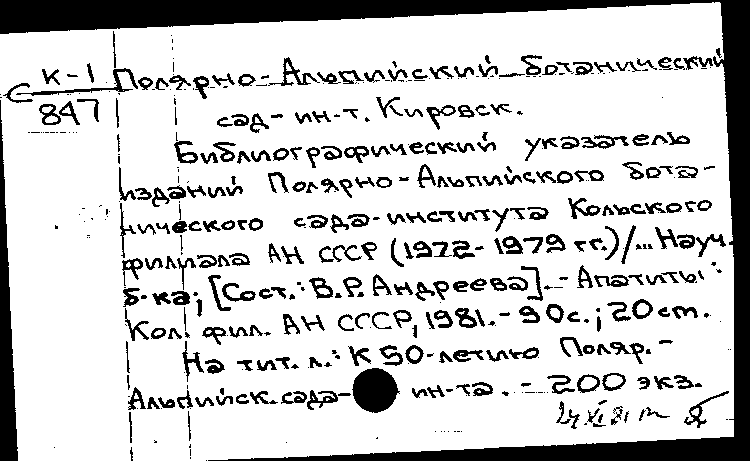 К-1 Полярно-Альпийский ботанический
С 847 сад-ин-т. Кировск.
Библиографический указатель
изданий Полярно-Альпийского бота-
нического сада-института Кольского
филиала АН СССР (1972-1979 гг.)/... Науч.
б-ка; [Сост.: В.Р. Андреева]. - Апатиты:
Кол. фил. АН СССР, 1981. - 90с.; 20 см.
На тит. л.: К 50-летию Поляр.-
Альпийск. сада- ин-та. - 200 экз.